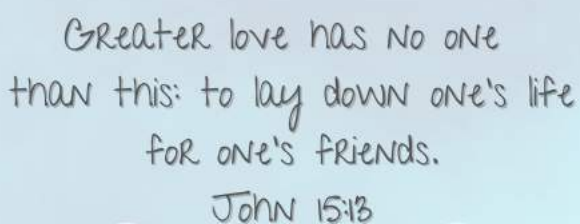 Greater love has no one
than this: to lay down one's life
for one's friends.
John 15:13